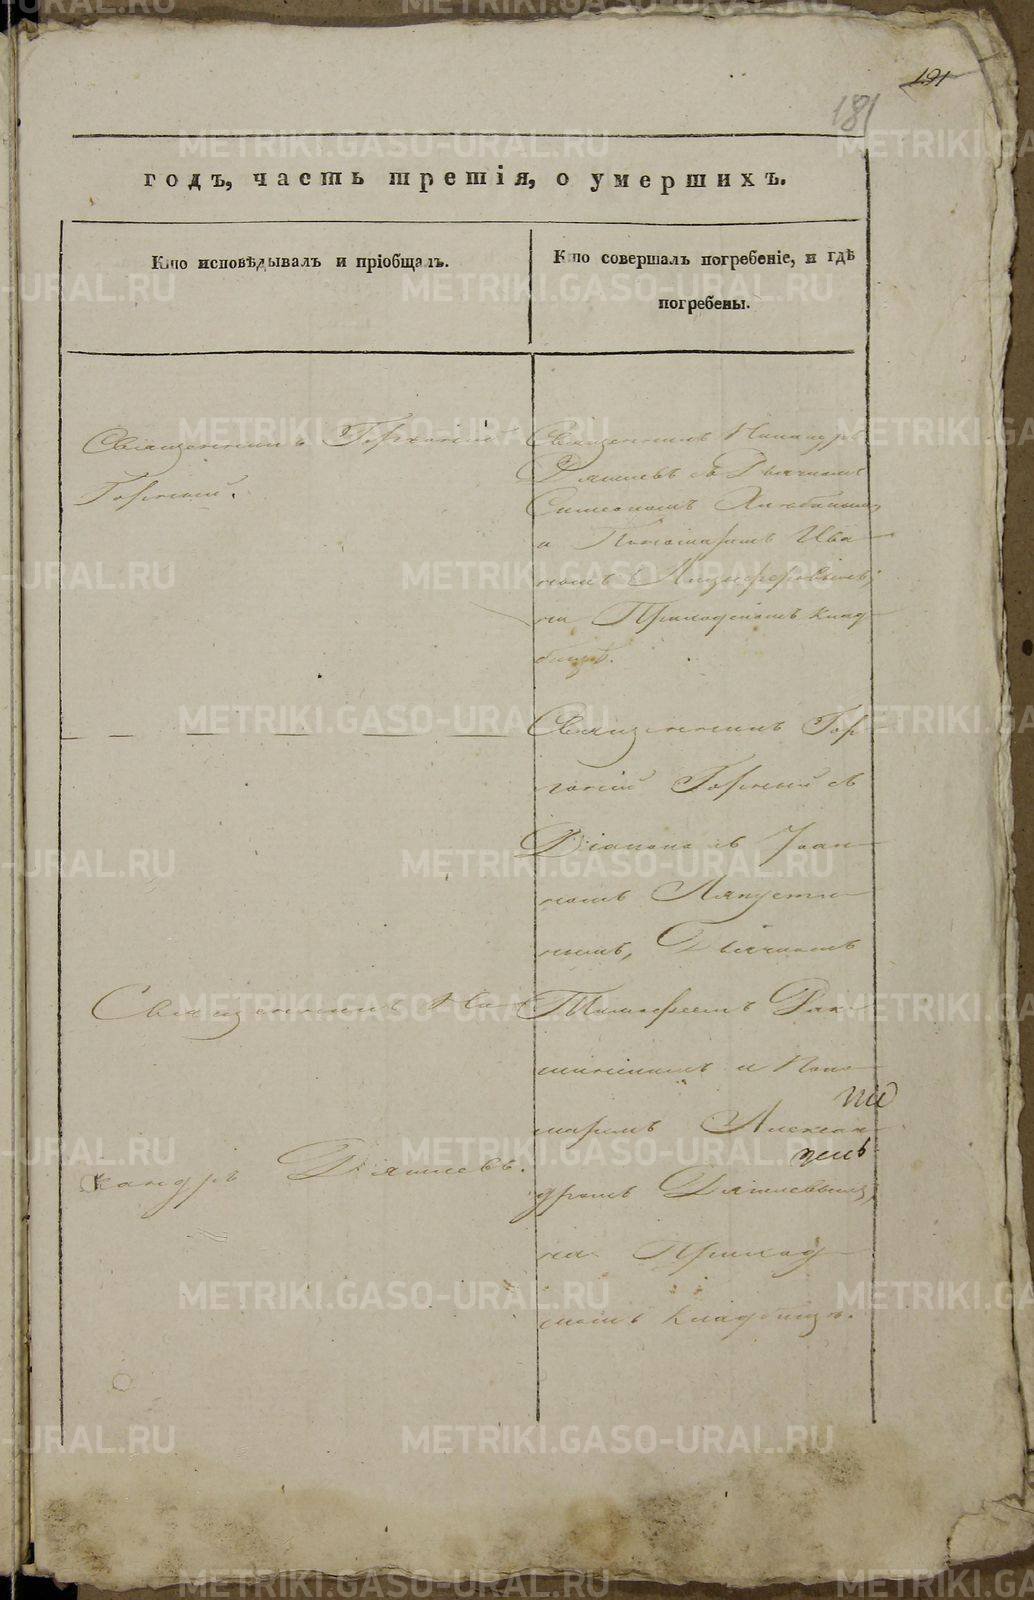 191
181
годъ, часть третія, о умершихъ.
Кто исповѣдывалъ и пріобщалъ.
Кто совершалъ погребеніе, и гдѣ
погребены.
Священникъ Горгоній
Горный.
Священникъ Никандръ
Дягилевъ съ Дьячкомъ
Симеономъ
и Пономаремъ Ива
номъ
на Приходскомъ клад
бищѣ.
Священникъ Гор
гоній Горный съ
Діакономъ Іоан
номъ Ляпусти
нымъ, Дьячкомъ
Тимофеемъ
и Поно
маремъ Алексан
дромъ Дягилевымъ,
на Приход
скомъ кладбищѣ.
Священникъ Ни
кандръ Дягилевъ.
METRIKI.GASO-URAL.RU